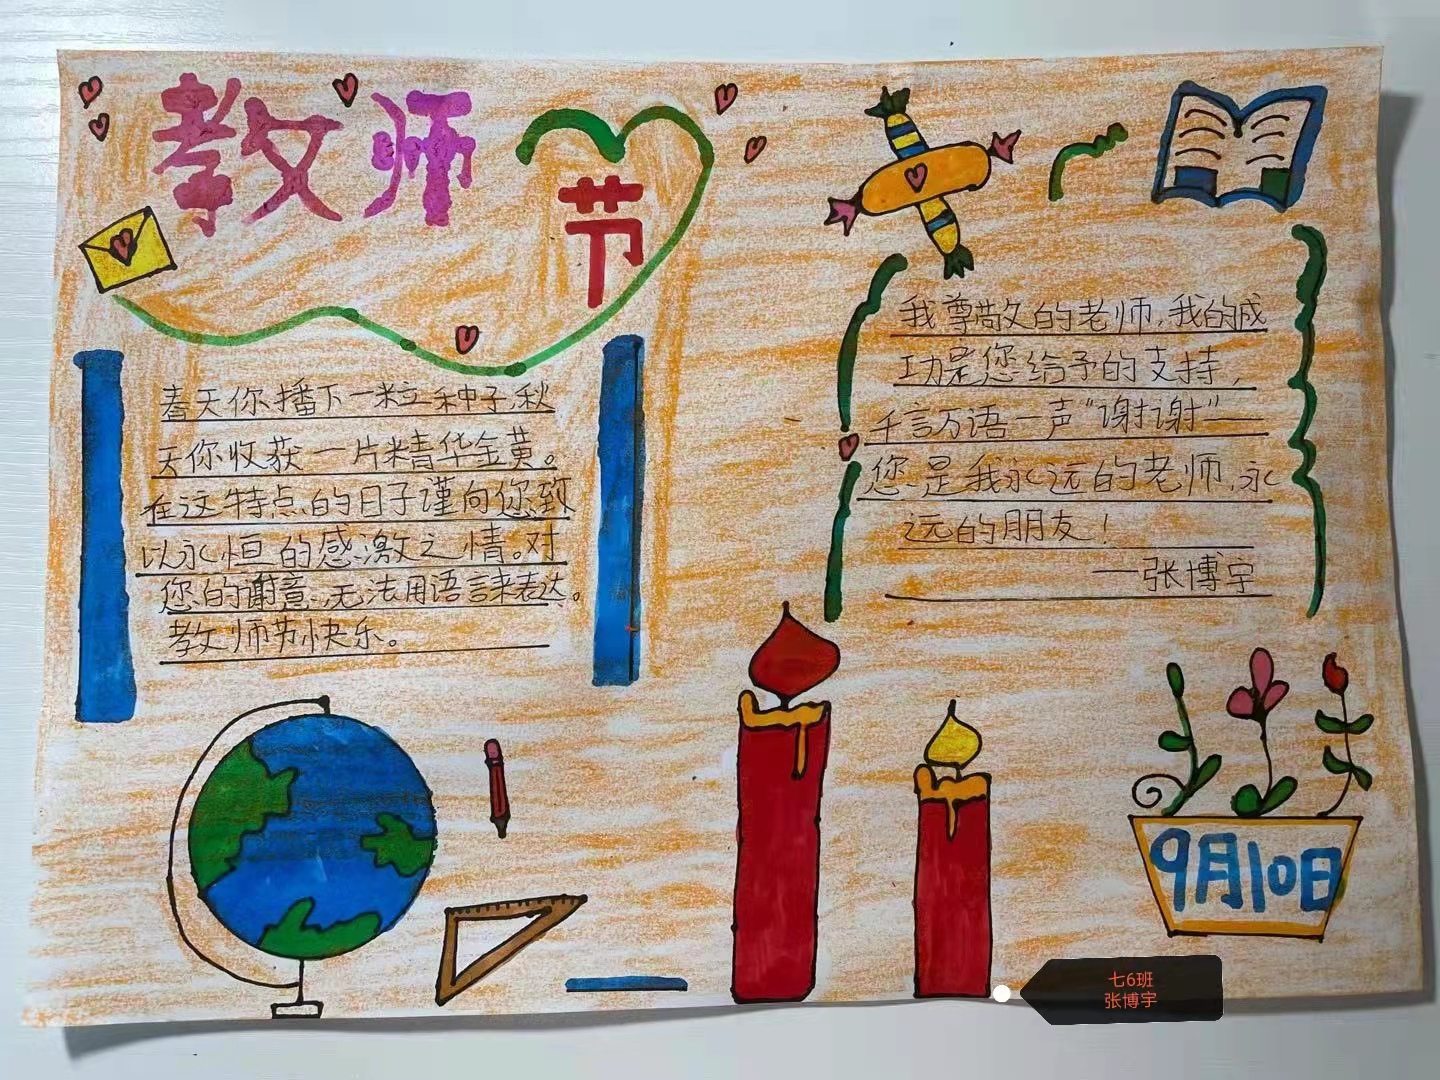 教师
节
春天你播下一粒种子,秋
天你收获一片精华金黄。
在这特点的日子谨向您致
以永恒的感激之情。对
您的谢意,无法用语言来表达。
教师节快乐。
我尊敬的老师,我的成
功是您给予的支持,
千言万语一声“谢谢”
您是我永远的老师,永
远的朋友!
一张博宇
9月10日
七6班
张博宇